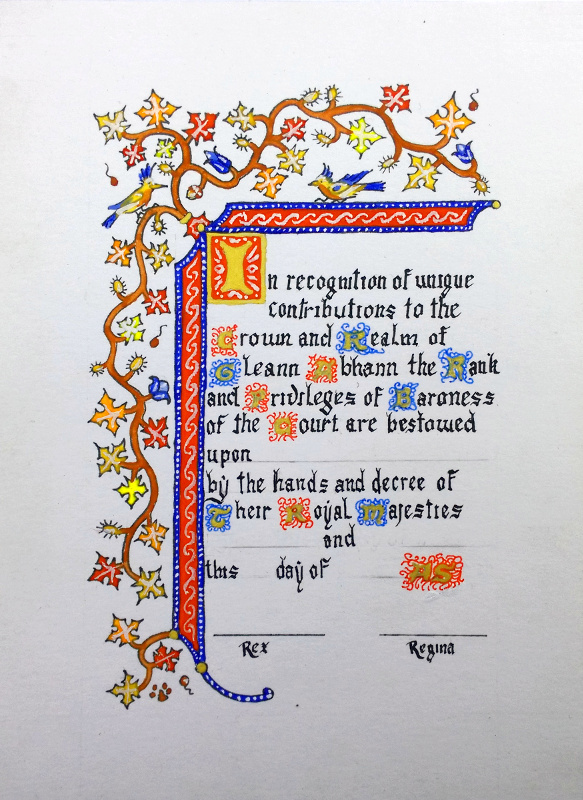 In recognition of unique
contributions to the
Crown and Realm of
Gleann Abhann the Rank
and Privileges of Baroness
of the Court are bestowed
upon
by the hands and decree of
Their Royal Majesties
and
this day of AS
Rex Regina